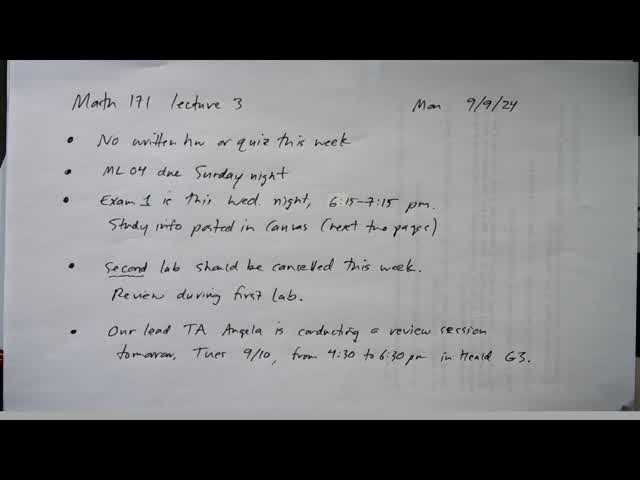 Math 171 lecture 3 Mon 9/9/24
• No written hw or quiz this week
• ML 04 due Sunday night
• Exam 1 is this Wed. night, 6:15-7:15 pm.
Study info posted in Canvas (next two pages)
• Second lab should be cancelled this week.
Review during first lab.
• Our lead TA Angela is conducting a review session
tomorrow, Tues 9/10, from 4:30 to 6:30 pm in Heald G3.